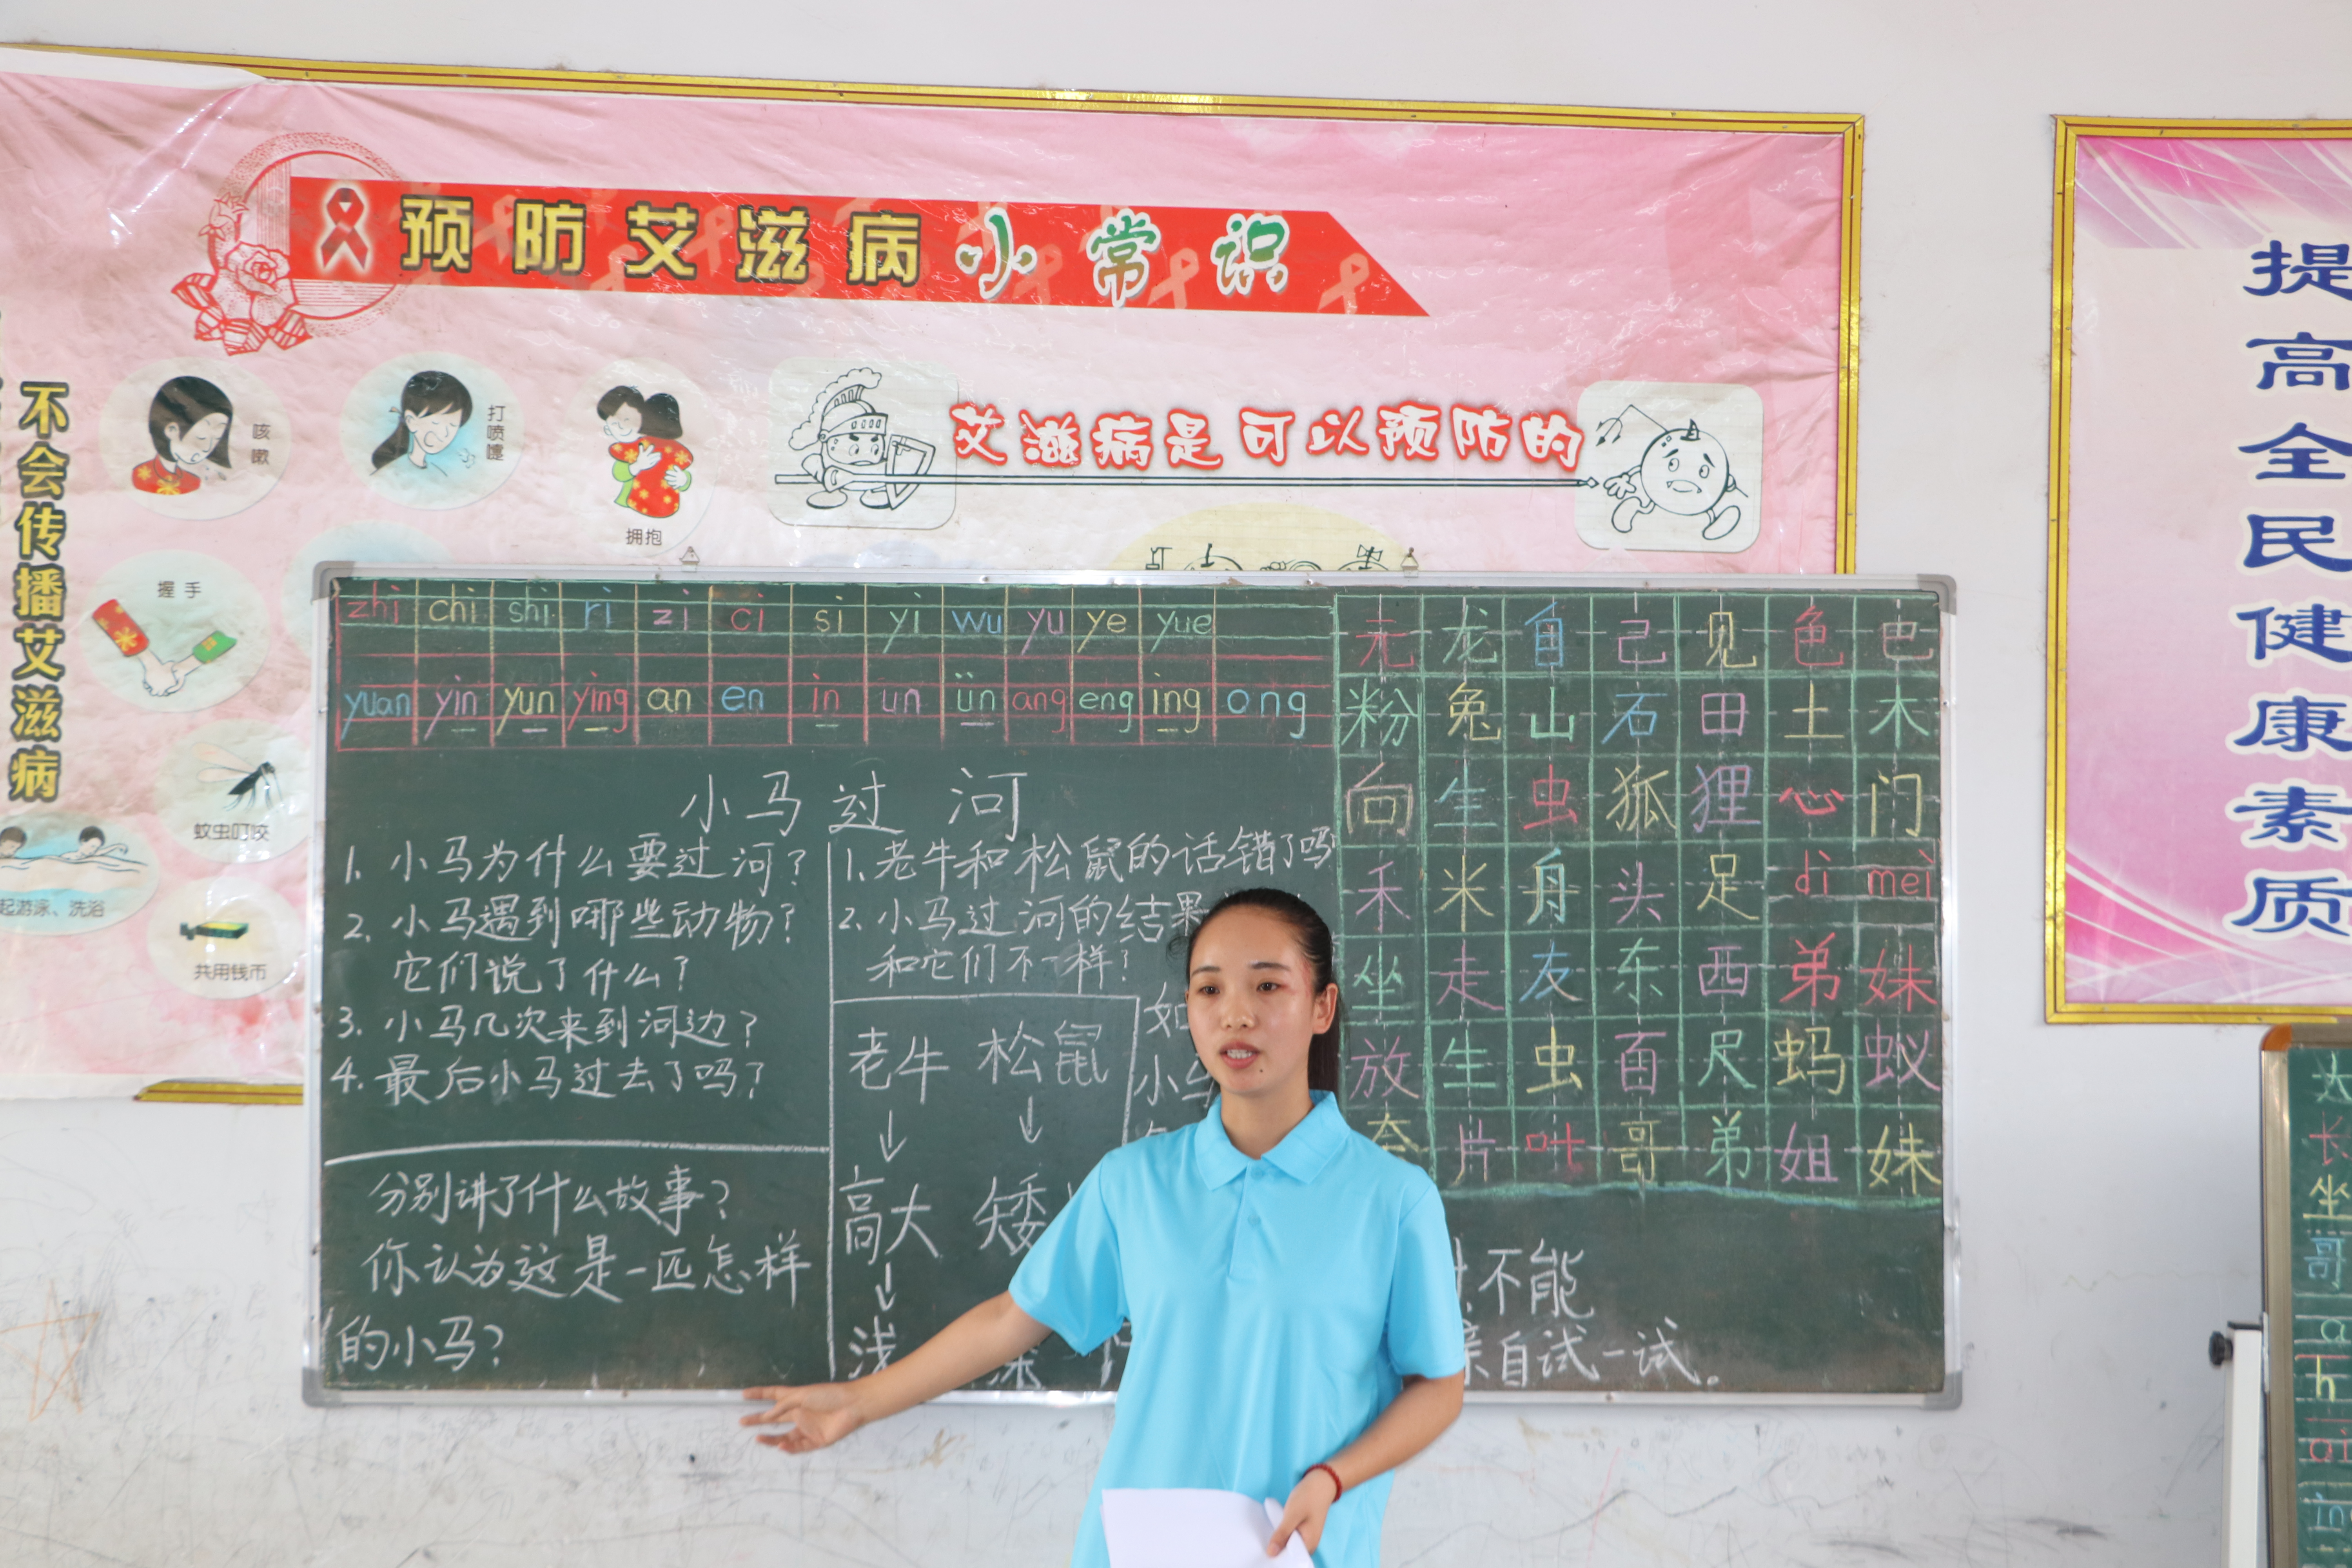 预防艾滋病小常识
不会传播艾滋病
咳嗽
打喷嚏
拥抱
艾滋病是可以预防的
握手
蚊虫叮咬
起游泳、洗浴
共用钱币
提高全民健康素质
zhi chi shi ri zi ci si yi wu yu ye yue
yuan yin yun ying an en in un ün ang eng ing ong
小马过河
1. 小马为什么要过河?
2. 小马遇到哪些动物?
它们说了什么?
3. 小马几次来到河边?
4. 最后小马过去了吗?
分别讲了什么故事?
你认为这是一匹怎样
的小马?
1. 老牛和松鼠的话错了吗
2. 小马过河的结果
和它们不一样?
老牛 松鼠
↓ ↓
高大 矮
↓
浅
小
不能
自试一试.
元 龙 自 己 见 色 巴
粉 兔 山 石 田 土 木
向 生 虫 狐 狸 心 门
禾 米 舟 头 足 di mei
坐 走 友 东 西 弟 妹
放 生 虫 百 尺 蚂 蚁
片 叶 哥 弟 姐 妹
长
坐
哥
a
h